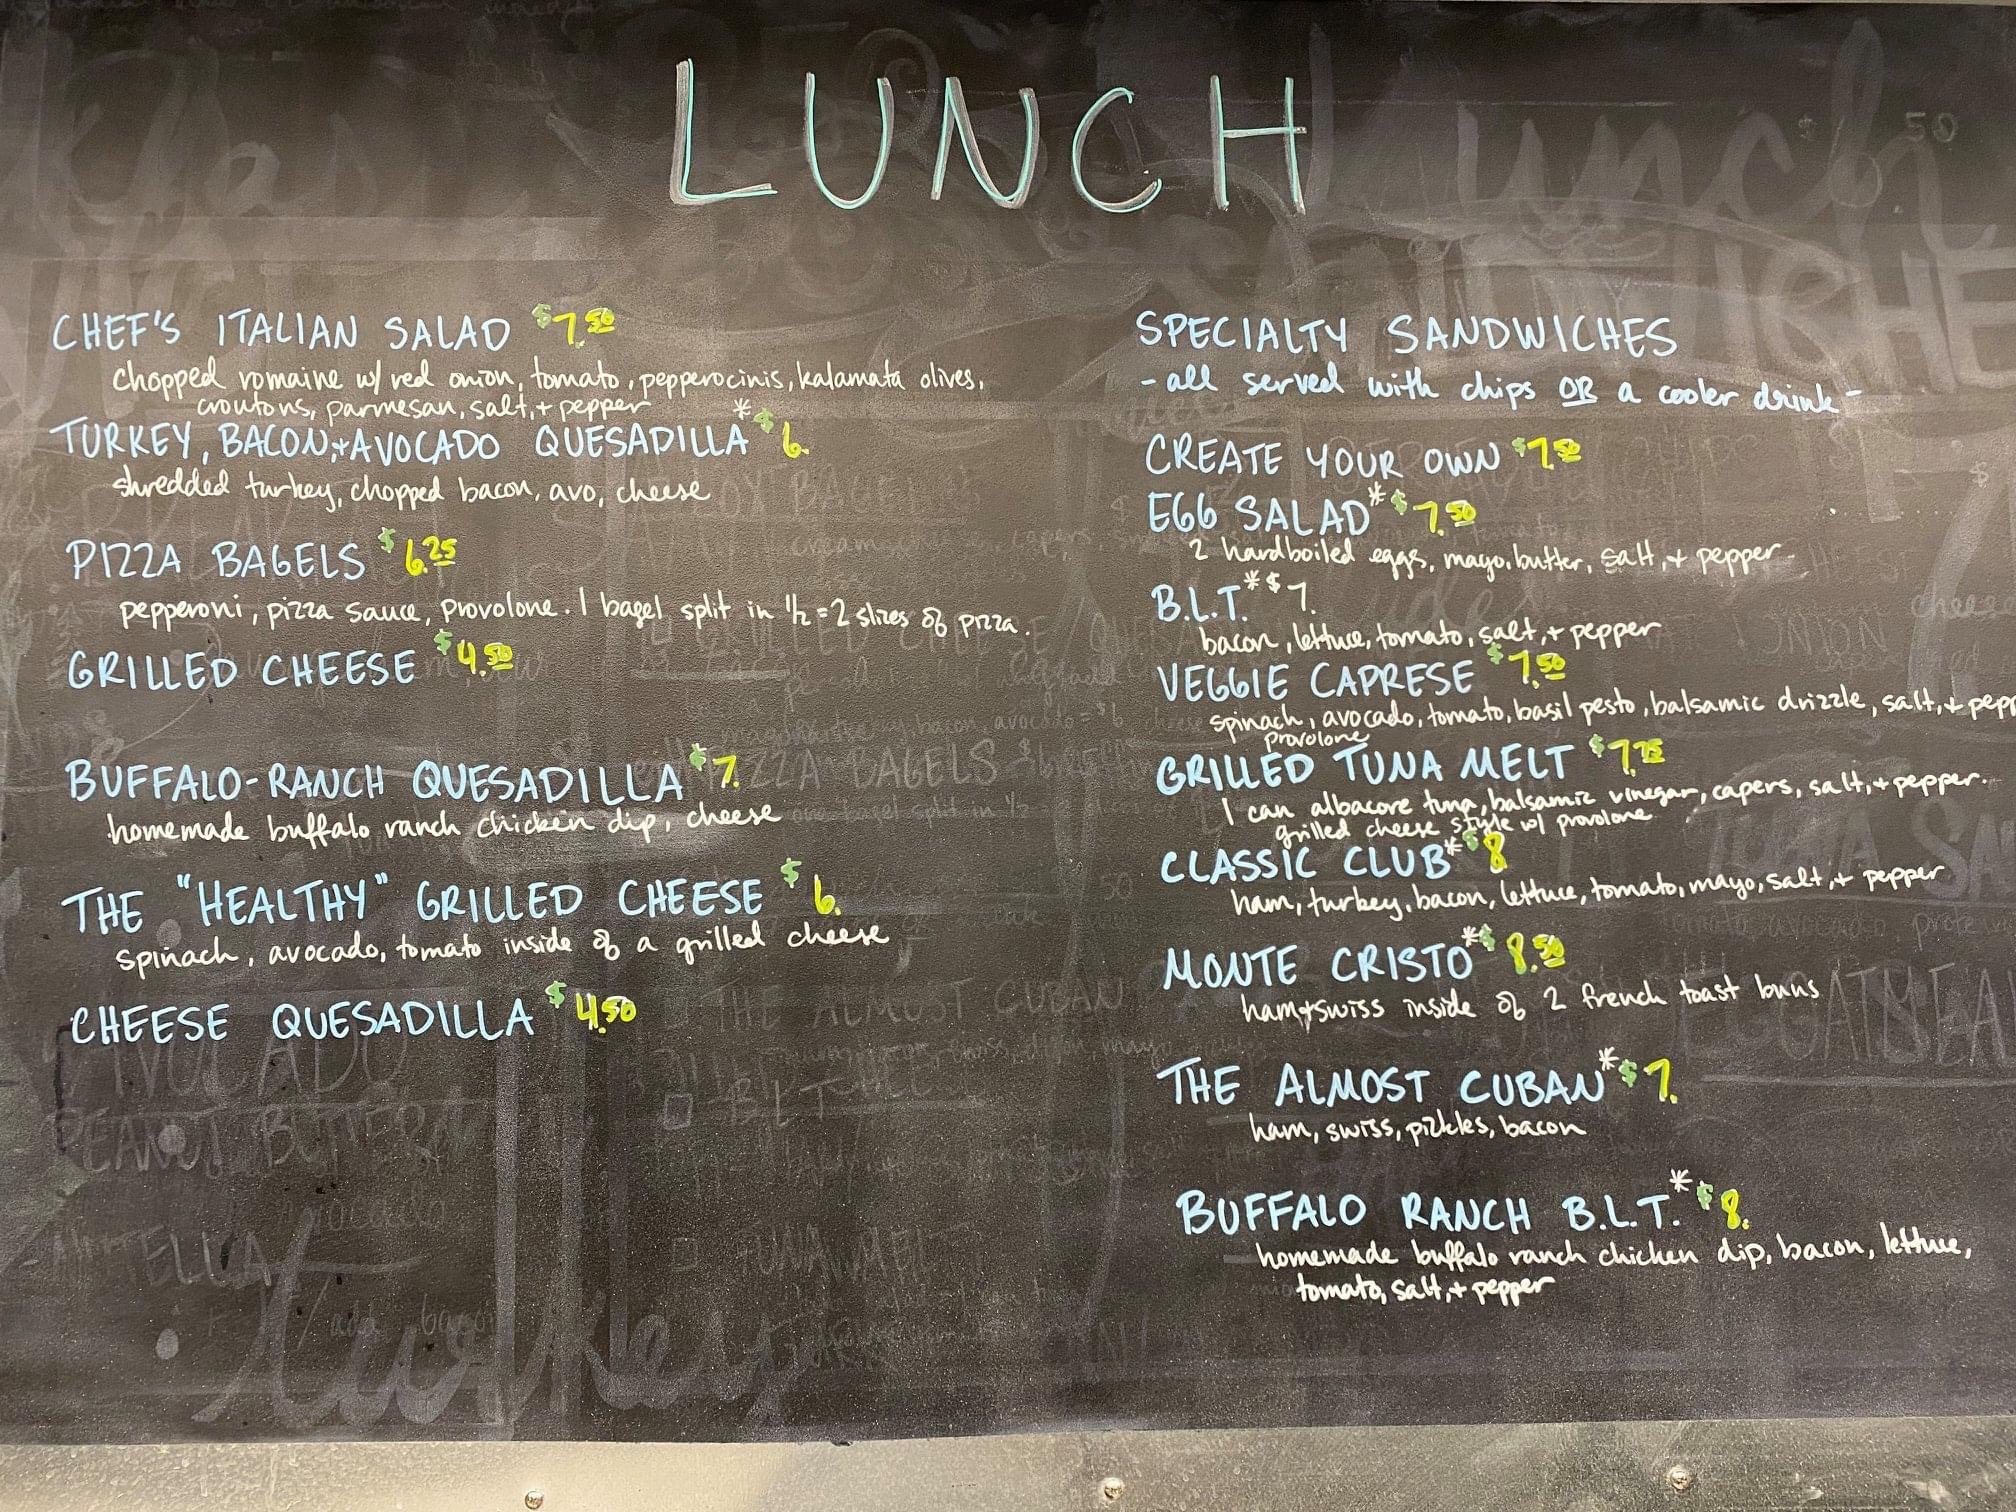 LUNCH
CHEF'S ITALIAN SALAD $7.50
chopped romaine w/ red onion, tomato, pepperocinis, kalamata olives,
croutons, parmesan, salt, + pepper
TURKEY, BACON, + AVOCADO QUESADILLA * $6.
shredded turkey, chopped bacon, avo, cheese
PIZZA BAGELS $6.25
pepperoni, pizza sauce, provolone. 1 bagel split in 1/2 = 2 slices of pizza.
GRILLED CHEESE $4.50
BUFFALO-RANCH QUESADILLA $7.
homemade buffalo ranch chicken dip, cheese
THE "HEALTHY" GRILLED CHEESE $6.
spinach, avocado, tomato inside of a grilled cheese
CHEESE QUESADILLA $4.50
SPECIALTY SANDWICHES
- all served with chips OR a cooler drink -
CREATE YOUR OWN $7.50
EGG SALAD * $7.50
2 hardboiled eggs, mayo, butter, salt, + pepper
B.L.T. * $7.
bacon, lettuce, tomato, salt, + pepper
VEGGIE CAPRESE $7.50
spinach, avocado, tomato, basil pesto, balsamic drizzle, salt, + pepp
provolone
GRILLED TUNA MELT $7.75
1 can albacore tuna, balsamic vinegar, capers, salt, + pepper.
grilled cheese style w/ provolone
CLASSIC CLUB * $8
ham, turkey, bacon, lettuce, tomato, mayo, salt, + pepper
MONTE CRISTO * $8.50
ham + swiss inside of 2 french toast buns
THE ALMOST CUBAN * $7.
ham, swiss, pickles, bacon
BUFFALO RANCH B.L.T. * $8.
homemade buffalo ranch chicken dip, bacon, lettuce,
tomato, salt, + pepper